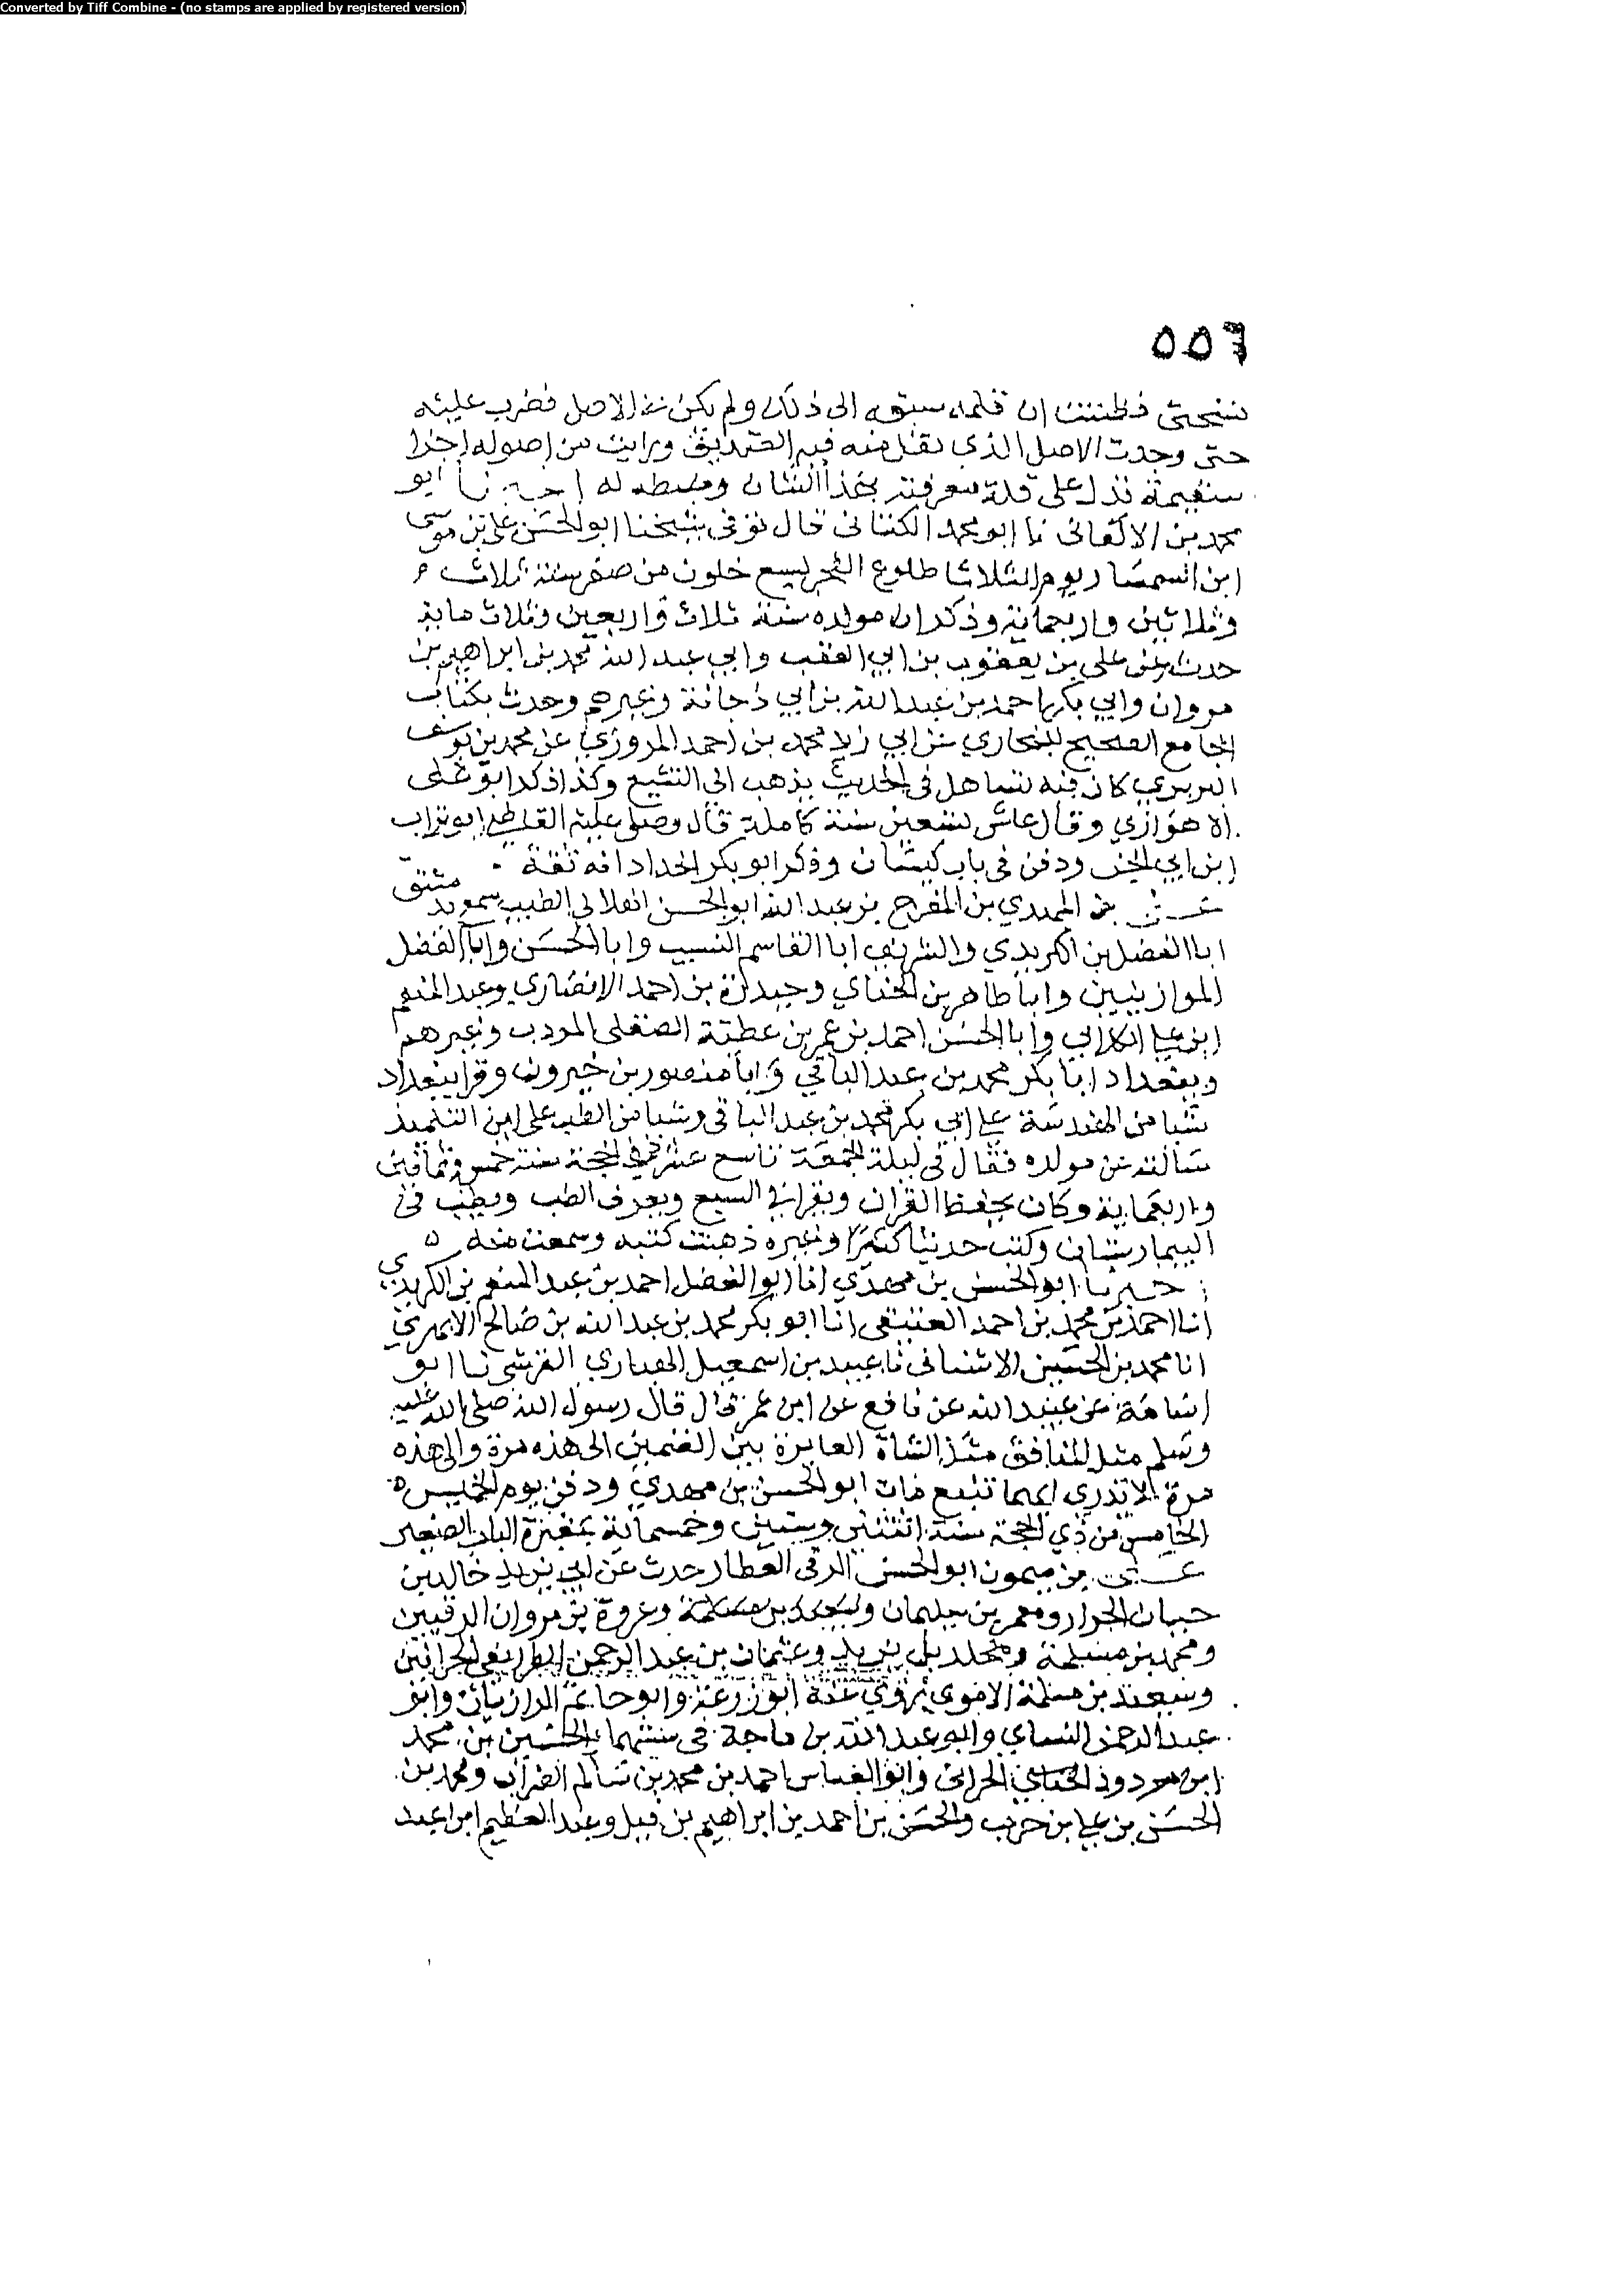 Converted by Tiff Combine - (no stamps are applied by registered version)
٥٥٦
نسختى فظننت ان قلمه سبقه الى ذلك ولم يكن فى الاصل فضرب عليه
حتى وجدت الاصل الذى نقل منه فيه التصديق ورايت من اصوله اجزا
سقيمة تدل على قلة معرفته بهذا الشان وضبطه له اخبرنا ابو
محمد بن الاكفانى نا ابو محمد الكتانى قال توفى شيخنا ابو الحسن على بن موسى
ابن السمسار يوم الثلاثا طلوع الفجر لسبع خلون من صفر سنة ثلاث
وثلاثين واربعمائة وذكر ان مولده سنة ثلاث واربعين وثلاث ماية
حدث عن على بن يعقوب بن ابي العقب وابي عبد الله محمد بن ابراهيم بن
مروان وابي بكر احمد بن عبد الله بن ابي دجانة وغيرهم وحدث بكتاب
الجامع الصحيح للبخاري عن ابي زيد محمد بن احمد المروزي عن محمد بن يوسف
الفربري كان فيه تساهل فى الحديث يذهب الى التشيع وكذا ذكر ابو على
الاهوازي وقال عاش تسعين سنة كاملة قال وصلى عليه القاضى ابو تراب
ابن ابي الجن ودفن فى باب كيسان وذكر ابو بكر الحداد انه ثقة
على بن المهدي بن المفرج بن عبد الله ابو الحسن الهلالى الطبيب سمع بدمشق
ابا الفضل بن الكريدي والشريف ابا القاسم النسيب وابا الحسن وابا الفضل
الموازينيين وابا طاهر بن الحناي وحيدرة بن احمد الانصاري وعبد المنعم
ابن علي الكلابي وابا الحسن احمد بن عمر بن عطية الصقلى المودب وغيرهم
وببغداد ابا بكر محمد بن عبد الباقي وابا منصور بن خيرون وقرا ببغداد
شيا من الهندسة علي ابي بكر محمد بن عبد الباقى وشيا من الطب على ابن التلميذ
سالته عن مولده فقال فى ليلة الجمعة تاسع عشر ذي الحجة سنة خمس وثمانين
واربعماية وكان يحفظ القران ويقرا في السبع ويعرف الطب ويطب فى
البيمارستان وكتب حديثا كثيرا وغيره ذهبت كتبه وسمعت منه
اخبرنا ابو الحسن بن مهدي انا ابو الفضل احمد بن عبد المنعم بن الكريدي
انا احمد بن محمد بن احمد العتيقى انا ابو بكر محمد بن عبد الله بن صالح الابهري
انا محمد بن الحسين الاشنانى نا عبيد بن اسمعيل الهباري القرشى نا ابو
اسامة عن عبيد الله عن نافع عن ابن عمر قال قال رسول الله صلى الله عليه
وسلم مثل المنافق مثل الشاة العايرة بين الغنمين الى هذه مرة والى هذه
مرة لا تدري ايهما تتبع مات ابو الحسن بن مهدي ودفن يوم الخميس
الخامس من ذي الحجة سنة اثنتين وستين وخمسماية بمقبرة الباب الصغير
على بن ميمون ابو الحسن الرقى العطار حدث عن ابي يزيد خالد بن
حيان الخراز ومعمر بن سليمان وسعيد بن مسلمة وعروة بن مروان الرقيين
ومحمد بن مسلمة ومخلد بن يزيد وعثمان بن عبد الرحمن الطرايفى الحرانيين
وسعيد بن مسلمة الاموي روي عنه ابو زرعة وابو حاتم الرازيان وابو
عبد الرحمن النساي وابو عبد الله بن ماجة فى سننهما والحسين بن محمد
ابن مودود الحرانى وابو العباس احمد بن محمد بن سالم الضراب ومحمد بن
الحسن بن علي بن حرب والحسن بن احمد بن ابراهيم بن فيل وعبد العظيم ابن